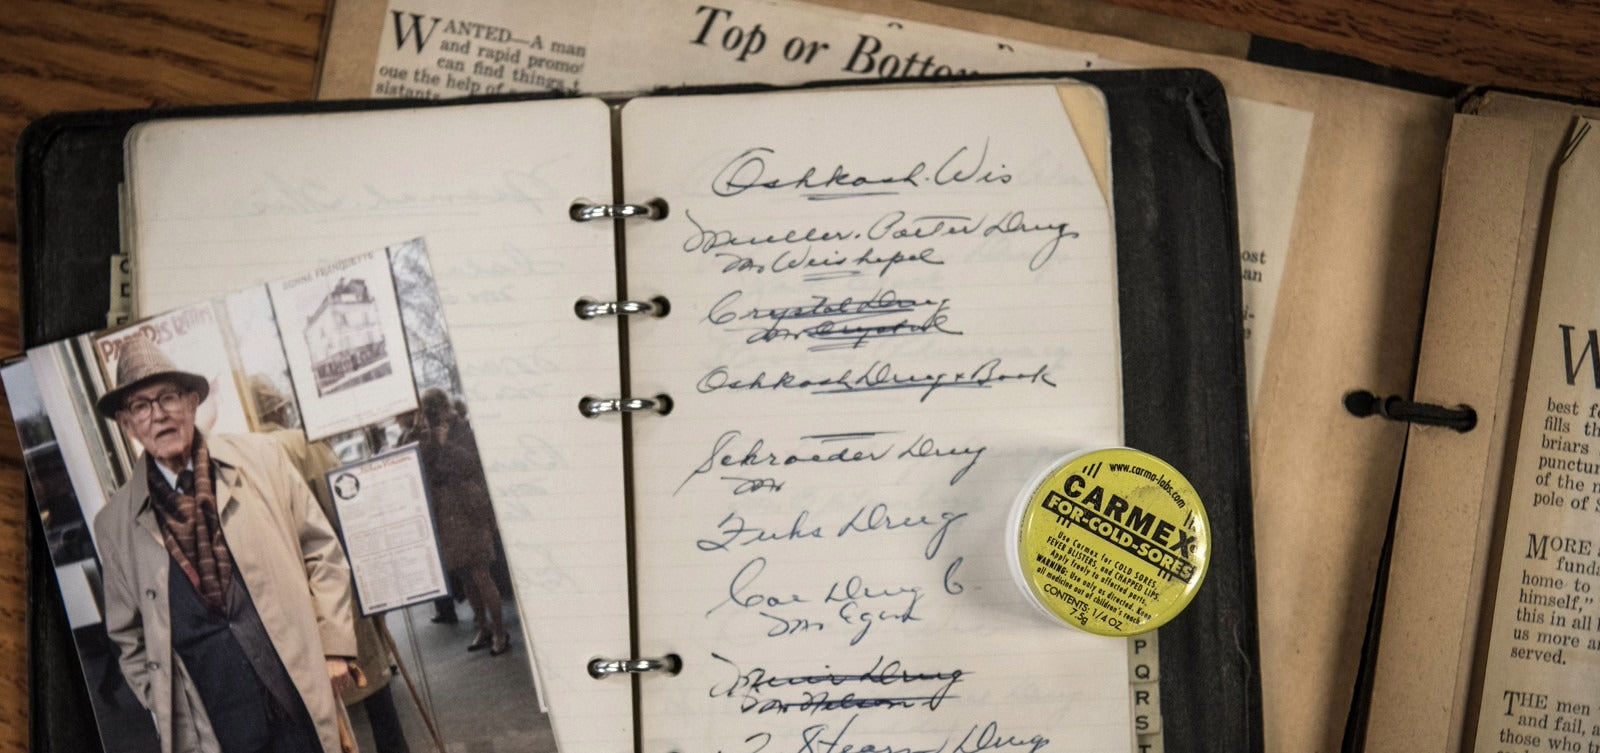 WANTED—A man
and rapid promo
can find things t
oue the help of
sistants
Top or Bottom
Oshkosh. Wis
Mueller. Potter Drugs
Mr Weishepel
Crystal Drug
Mr Crystal
Oshkosh Drug & Book
Schroeder Drug
Mr
Fuhs Drug
Coe Drug Co
Mr Egert
Muir Drug
Mr Nelson
Stearn Drug
BONNE FRANQUETTE
www.carma-labs.com
CARMEX
FOR-COLD-SORES
Use Carmex for COLD SORES,
FEVER BLISTERS, and CHAPPED LIPS.
Apply freely to affected parts.
WARNING: Use only as directed. Keep
all medicine out of children's reach.
CONTENTS: 1/4 OZ
7.5g
P
Q
R
S
T
ost
an
W
best f
fills th
briars
punctur
of the n
pole of S
MORE
funda
home to
himself,"
this in all
us more a
served.
THE men
and fail, a
those who t